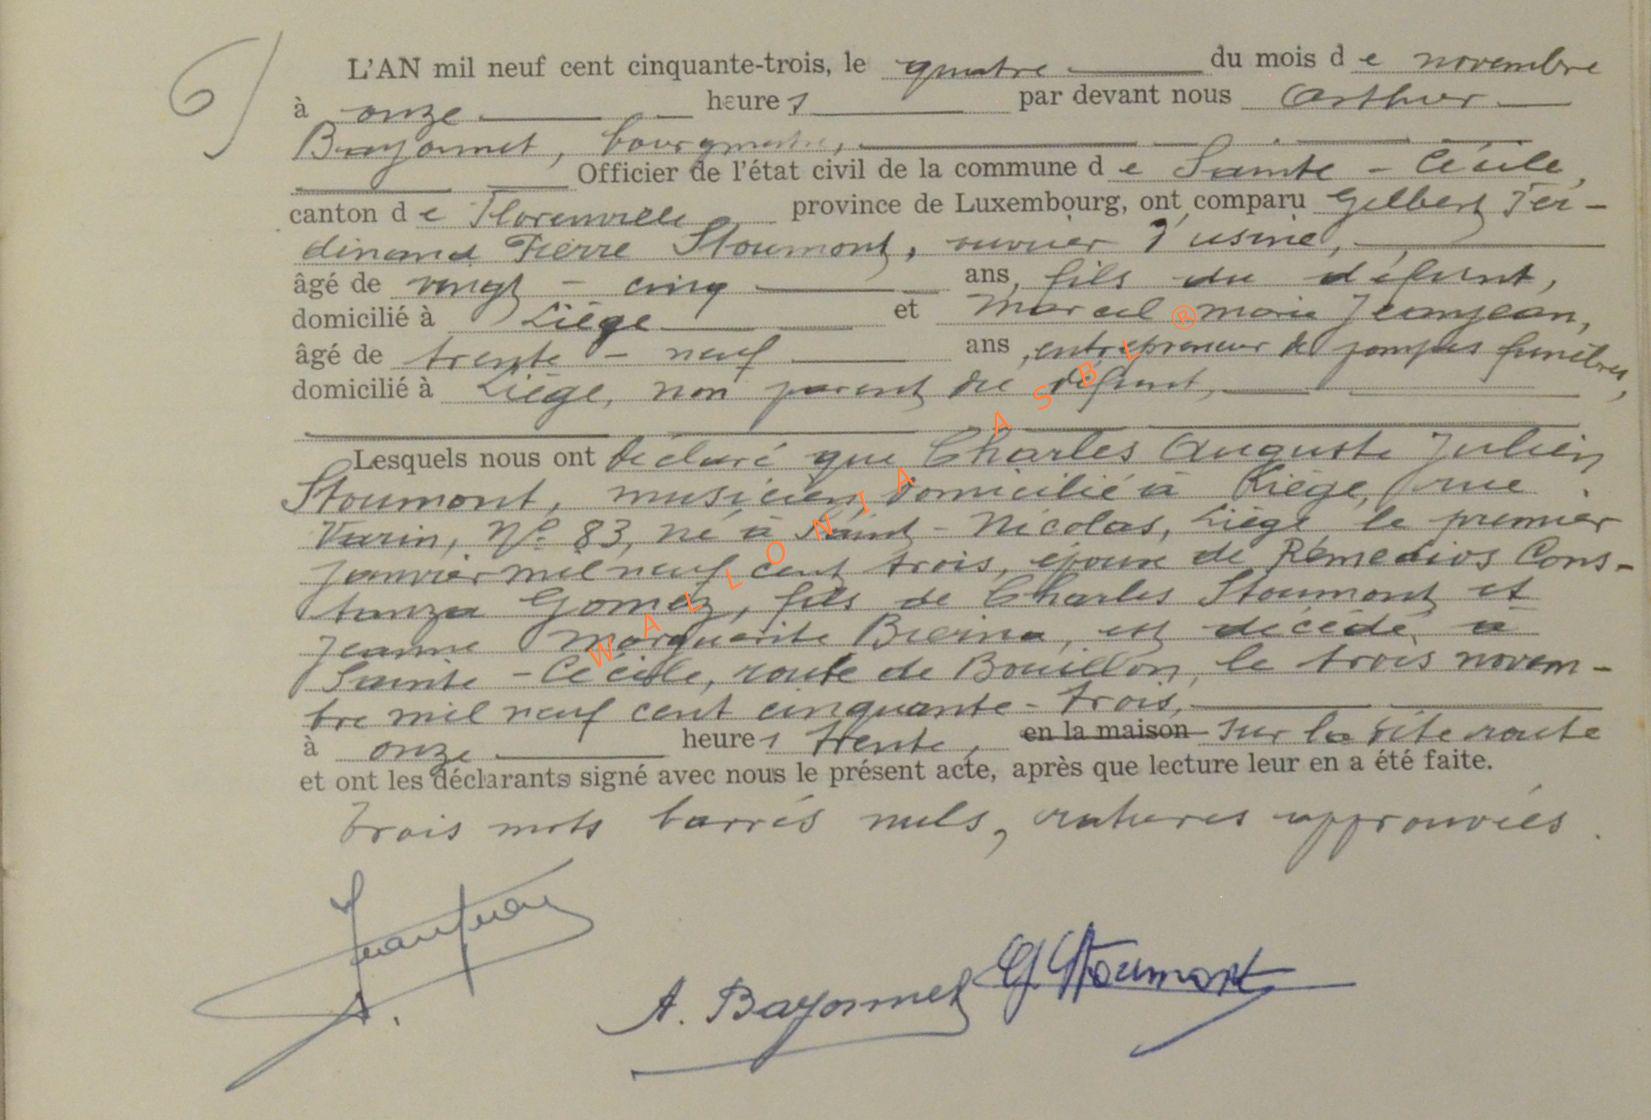 6)
L'AN mil neuf cent cinquante-trois, le quatre du mois de novembre
à onze heures par devant nous Arthur
Bayonnet, bourgmestre,
Officier de l'état civil de la commune de Sainte-Cécile,
canton de Florenville province de Luxembourg, ont comparu Gilbert Fer-
dinand Pierre Stoumont, ouvrier d'usine,
âgé de vingt-cinq ans, fils du défunt,
domicilié à Liège et Marcel Marie Jeanjean,
âgé de trente-neuf ans, entrepreneur de pompes funèbres,
domicilié à Liège, non parent du défunt,
Lesquels nous ont déclaré que Charles Auguste Julien
Stoumont, musicien, domicilié à Liège, rue
Varin, N° 83, né à Saint-Nicolas, Liège le premier
janvier mil neuf cent trois, époux de Rémedios Cons-
tanza Gomez, fils de Charles Stoumont et
Jeanne Marguerite, est décédé à
Sainte-Cécile, route de Bouillon, le trois novem-
bre mil neuf cent cinquante-trois,
à onze heures trente, en la maison sur la dite route
et ont les déclarants signé avec nous le présent acte, après que lecture leur en a été faite.
Trois mots barrés nuls, ratures approuvées.
Jeanjean
A. Bayonnet G. Stoumont
WALLONIA ASBL ®